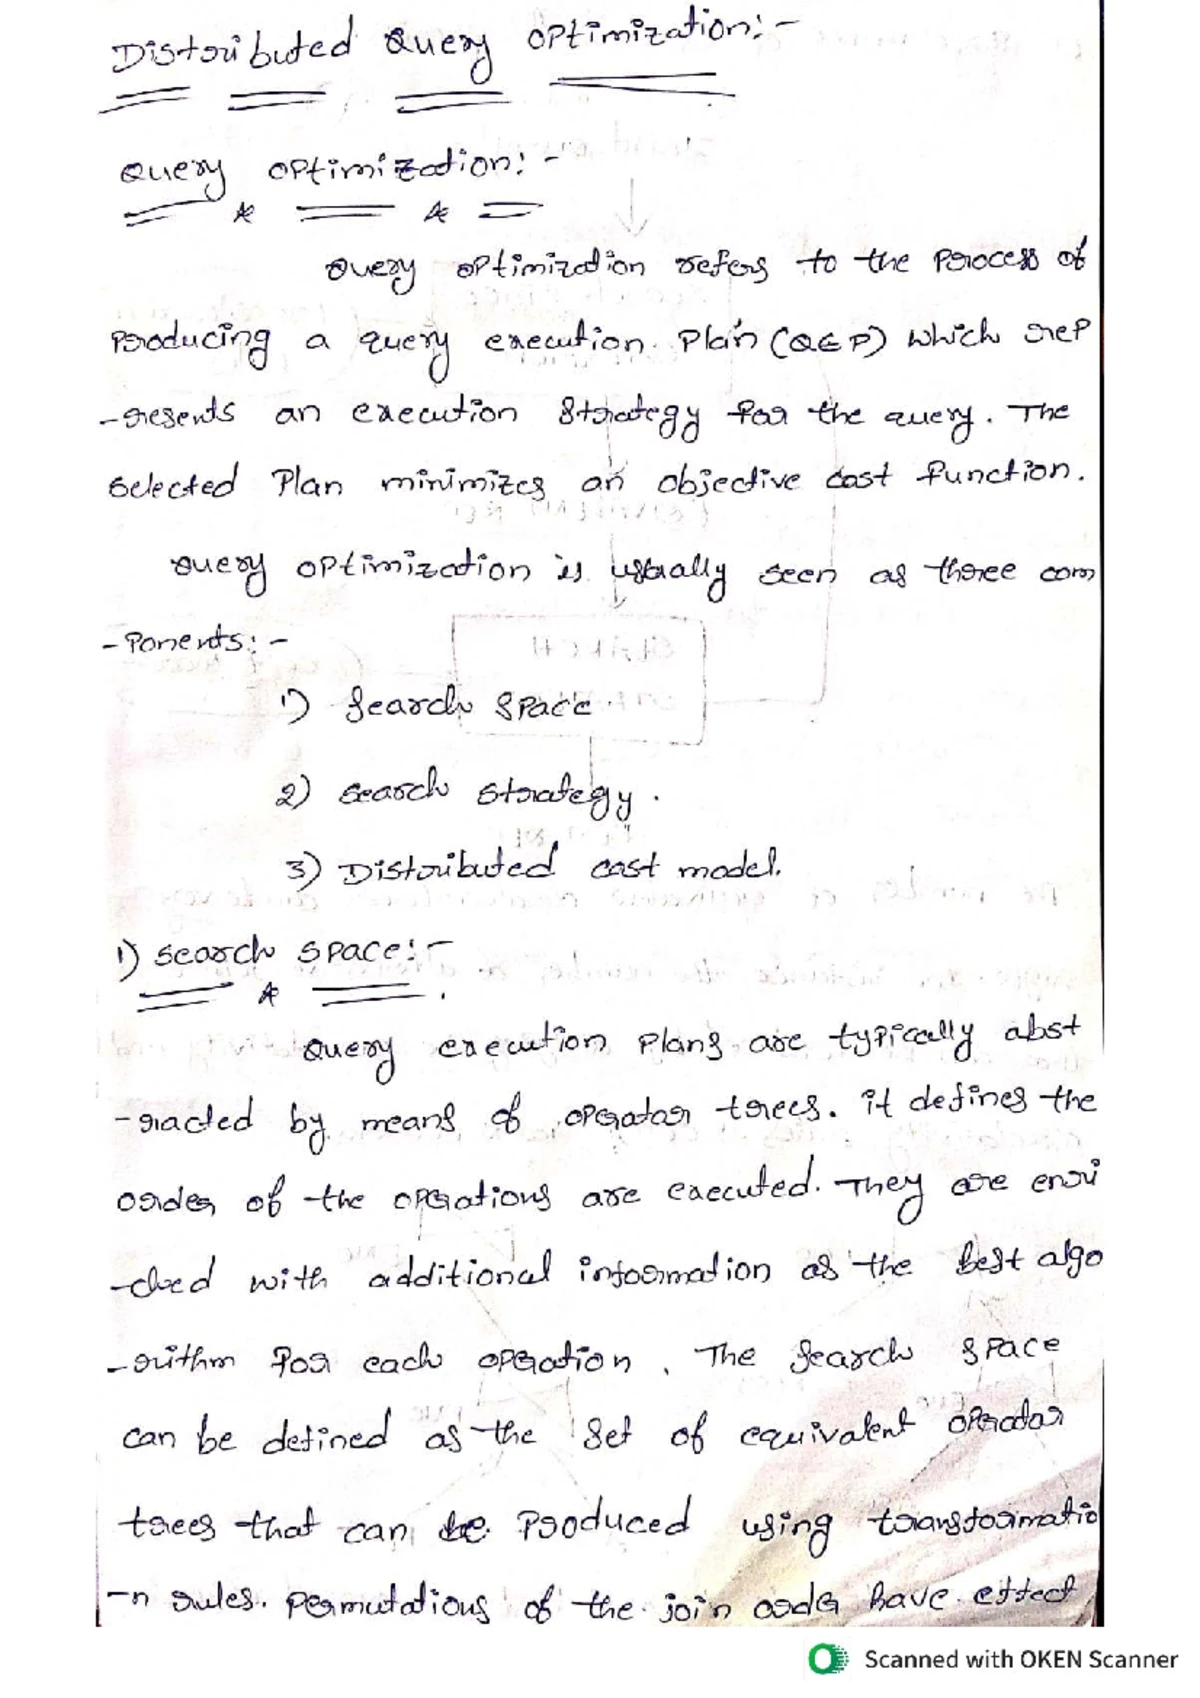 Distributed Query optimization:-
Query optimization:-
Query optimization refers to the process of
producing a query execution plan (QEP) which rep
-resents an execution strategy for the query. The
selected plan minimizes an objective cost function.
Query optimization is usually seen as three com
-ponents:-
1) Search space
2) Search strategy.
3) Distributed cost model.
1) Search space:-
Query execution plans are typically abst
-racted by means of operator trees. it defines the
order of the operations are executed. They are enri
-ched with additional information as the best algo
-rithm for each operation. The search space
can be defined as the set of equivalent operator
trees that can be produced using transformatio
-n rules. permutations of the join order have effect
Scanned with OKEN Scanner